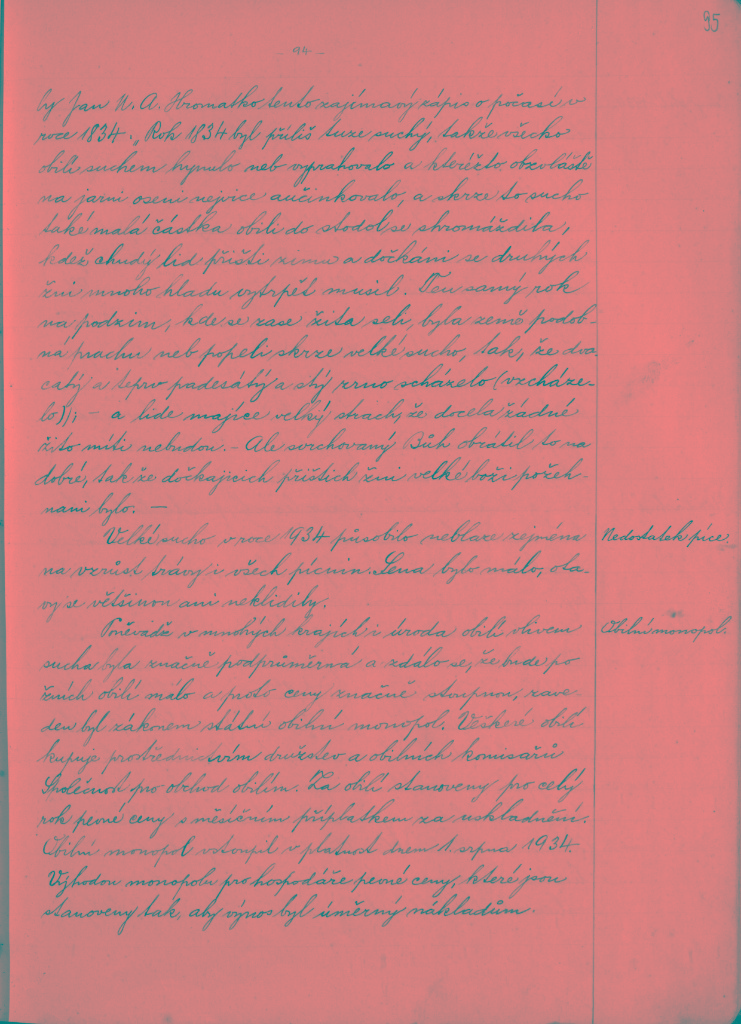 95
- 94 -
by Jan N. A. Hromatko tento zajímavý zápis o počasí v
roce 1834. „Rok 1834 byl příliš tuze suchý, takže všecko
obilí suchem hynulo neb vyprahovalo a kteréžto obzvláště
na jarní osení nejvíce aučinkovalo, a skrze to sucho
také malá částka obilí do stodol se shromáždila,
kdež chudý lid příští zimu a dočkání se druhých
žní mnoho hladu vytrpět musil. Ten samý rok
na podzim, kde se zase žita seli, byla země podob-
ná prachu neb popeli skrze velké sucho, tak, že dva-
catý a teprv padesátý a stý zrno scházelo (vzcháze-
lo); - a lidé majíce velký strach, že docela žádné
žito míti nebudou. - Ale svrchovaný Bůh obrátil to na
dobré, tak že dočkajících příštích žní velké boží požeh-
nání bylo. -
Velké sucho v roce 1934 působilo neblaze zejména
na vzrůst trávy i všech pícnin. Sena bylo málo, ota-
vy se většinou ani neklidily.
Nedostatek píce.
Poněvadž v mnohých krajích i úroda obilí vlivem
sucha byla značně podprůměrná a zdálo se, že bude po
žních obilí málo a proto ceny značně stoupnou, zave-
den byl zákonem státní obilní monopol. Veškeré obilí
kupuje prostřednictvím družstev a obilních komisařů
Společnost pro obchod obilím. Za obilí stanoveny pro celý
rok pevné ceny s měsíčním příplatkem za uskladnění.
Obilní monopol vstoupil v platnost dnem 1. srpna 1934.
Výhodou monopolu pro hospodáře pevné ceny, které jsou
stanoveny tak, aby výnos byl úměrný nákladům.
Obilní monopol.